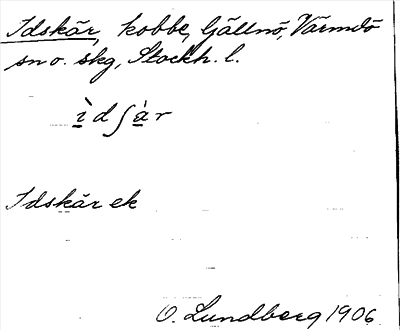 Idskär, kobbe, Gällnö, Värmdö
sn o. skg, Stockh. l.
ìdʃàr
Idskär ek
O. Lundberg 1906